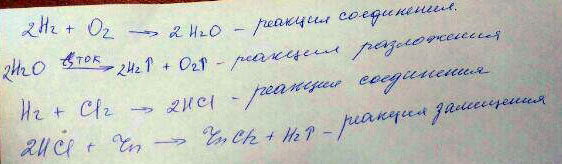 2H₂ + O₂ → 2H₂O - реакция соединения.
2H₂O эл.ток→ 2H₂↑ + O₂↑ - реакция разложения
H₂ + Cl₂ → 2HCl - реакция соединения
2HCl + Zn → ZnCl₂ + H₂↑ - реакция замещения